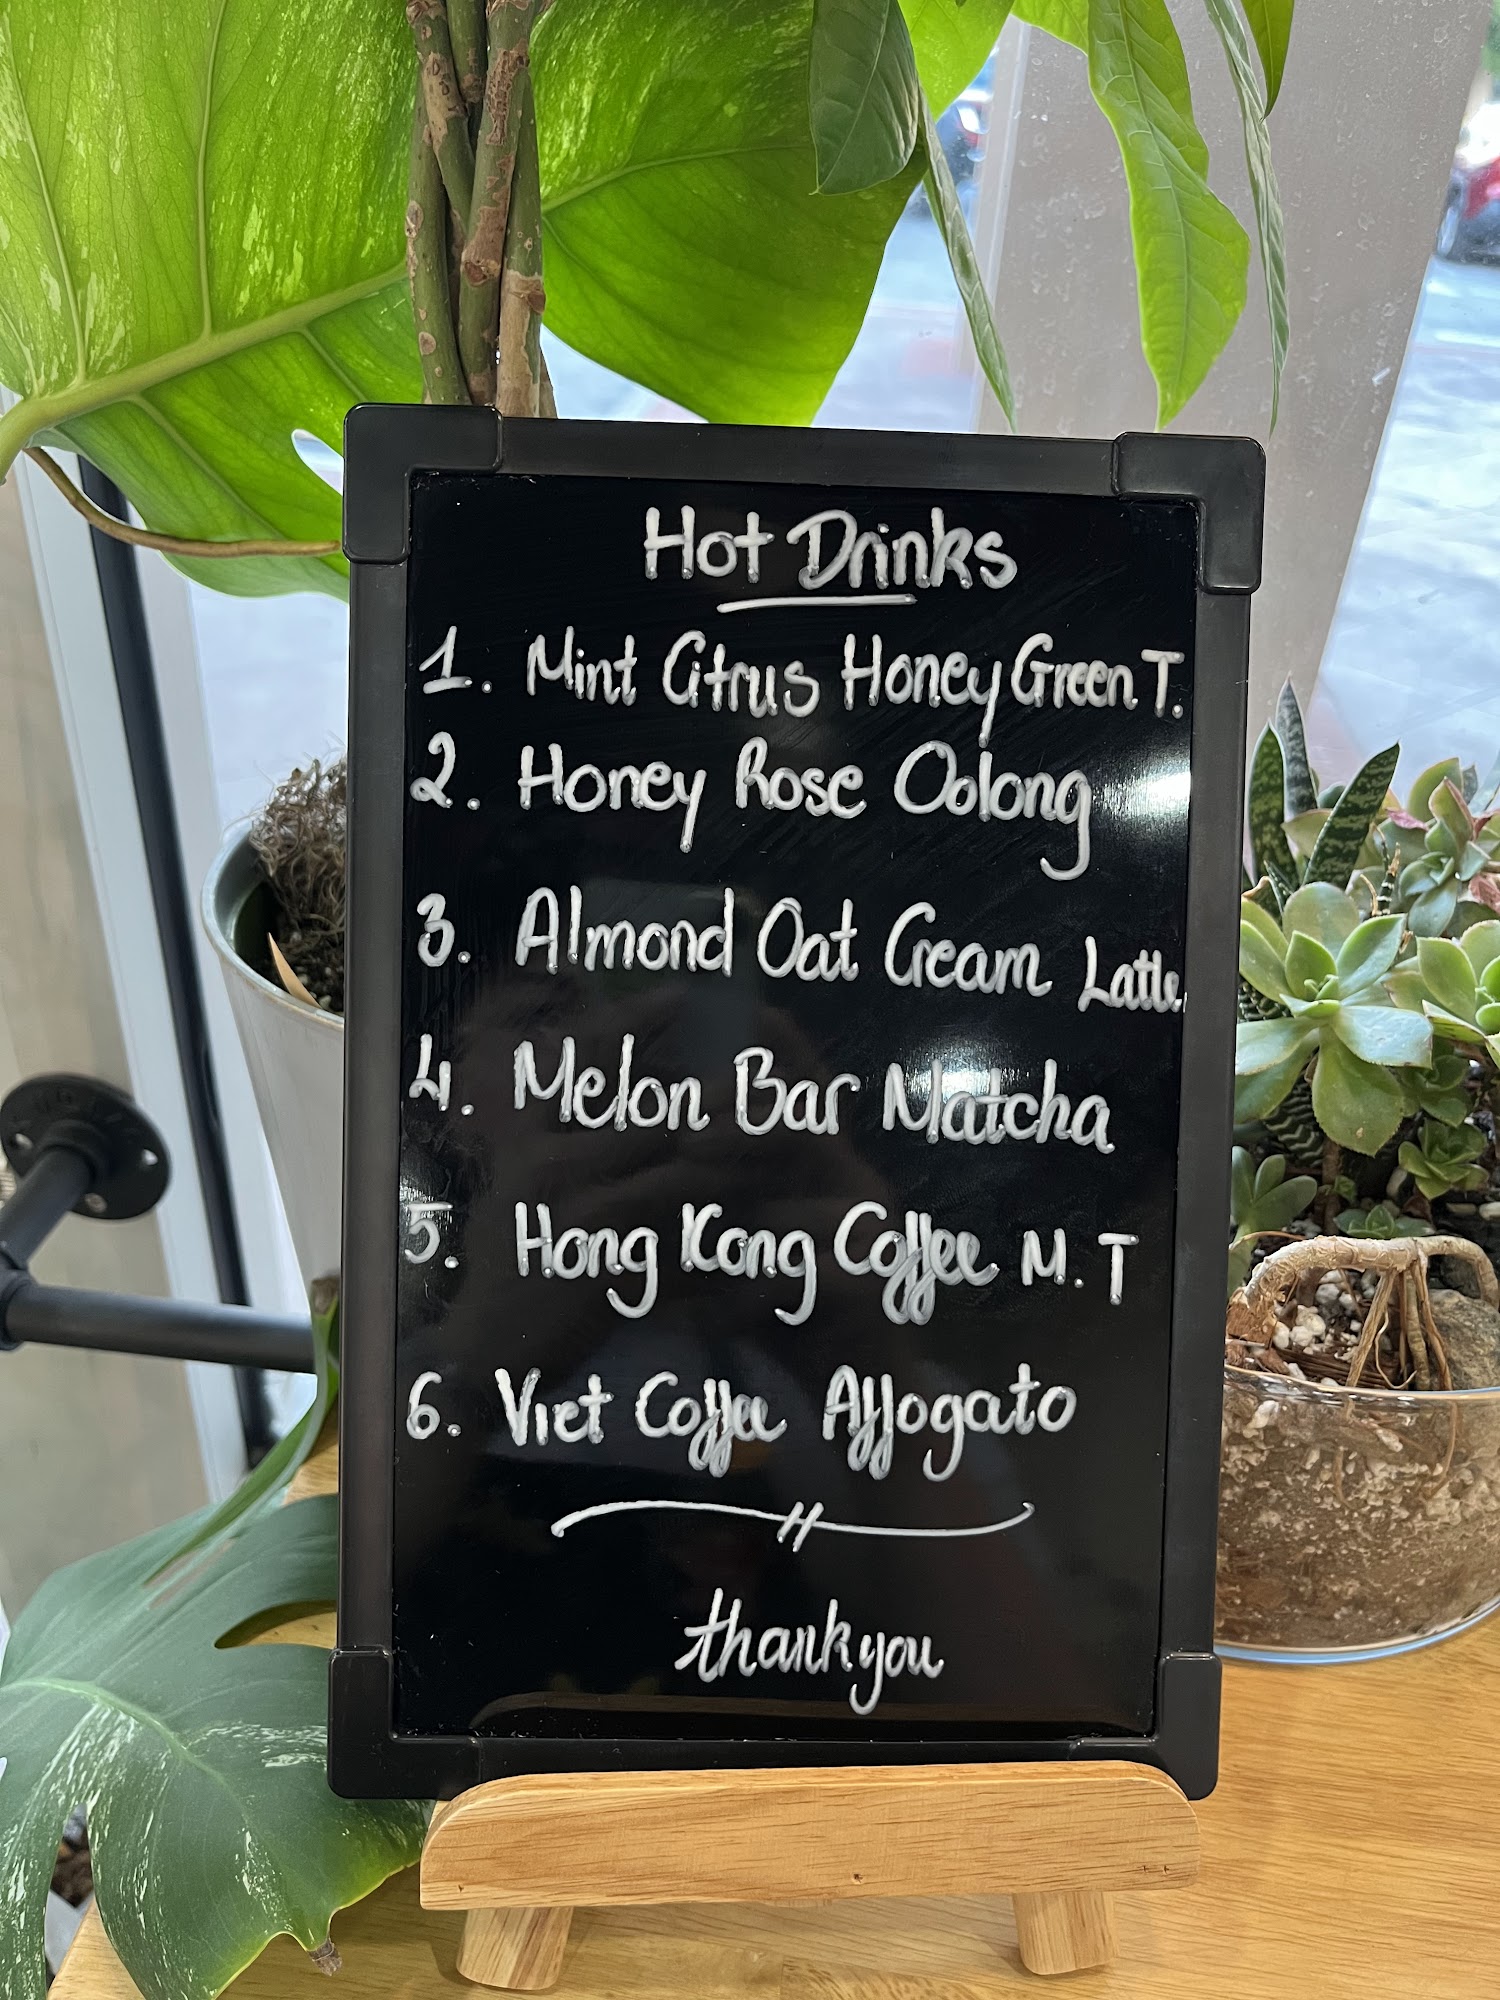 Hot Drinks
1. Mint Citrus Honey Green T.
2. Honey Rose Oolong
3. Almond Oat Cream Latte.
4. Melon Bar Matcha
5. Hong Kong Coffee M.T
6. Viet Coffee Affogato
thank you